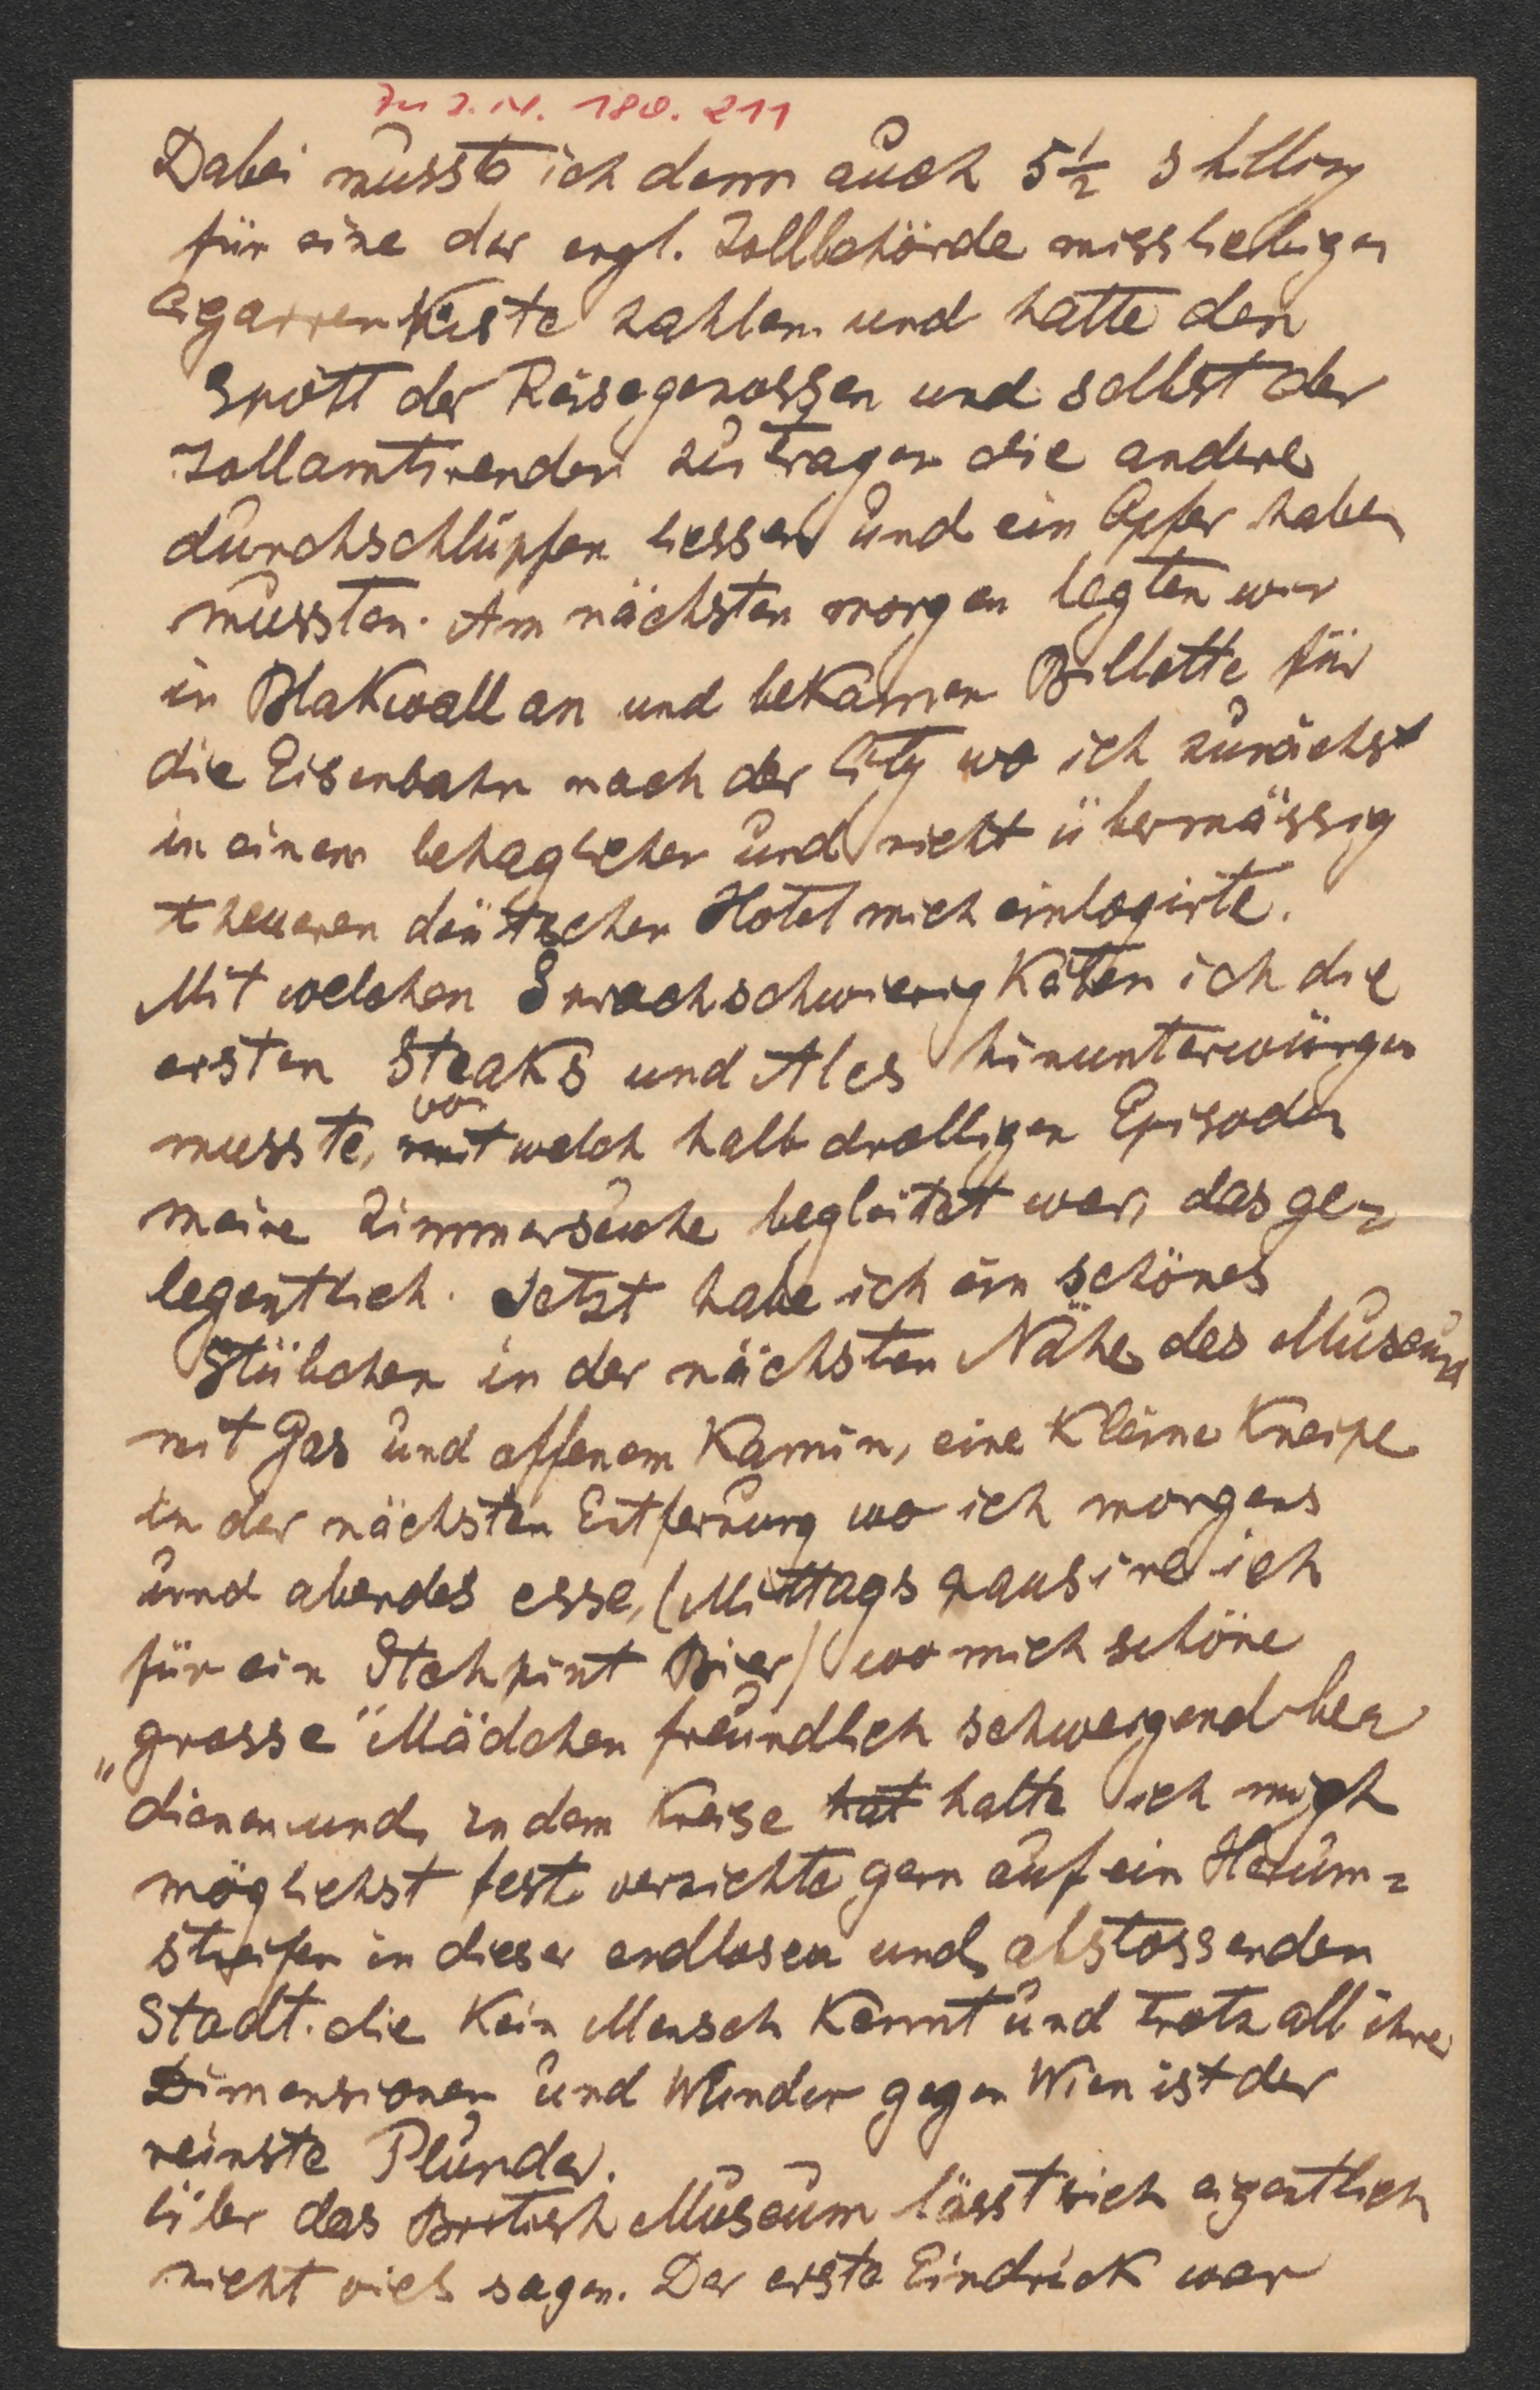 Zu I.N. 180.211
Dabei musste ich denn auch 5½ shilling
für eine der engl. Zollbehörde missliebigen
Cigarrenkiste zahlen und hatte den
Spott der Reisegenossen und selbst der
zu tragen die andere
durchschlüpfen liessen und ein Opfer haben
mussten. Am nächsten morgen legten wir
in Blakwall an und bekamen Billette für
die Eisenbahn nach der City wo ich zunächst
in einem behaglichen und nicht übermässig
theueren deutschen Hotel mich einlogirte.
Mit welchen Sprachschwierigkeiten ich die
ersten Steaks und Ales hinunterwürgen
musste, mit von welch halb drolligen Episoden
meine Zimmersuche begleitet war, das ge=
legentlich. Jetzt habe ich ein schönes
Stübchen in der nächsten Nähe des Museums
mit Gas und offenem Kamin, eine kleine Kneipe
in der nächsten Entfernung wo ich morgens
und abendes esse, (Mittags pausire ich
für ein Stehpint Bier) wo mich schöne
„grosse" Mädchen freundlich schweigend be=
dienen und in dem Kreise hat halte ich mich
möglichst fest verzichte gern auf ein Herum=
streifen in dieser endlosen und abstossenden
Stadt. die kein Mensch kennt und trotz all ihrer
Dimensionen und Wunder gegen Wien ist der
reinste Plunder.
über das British Museum lässt sich eigentlich
nicht viel sagen. Der erste Eindruck war